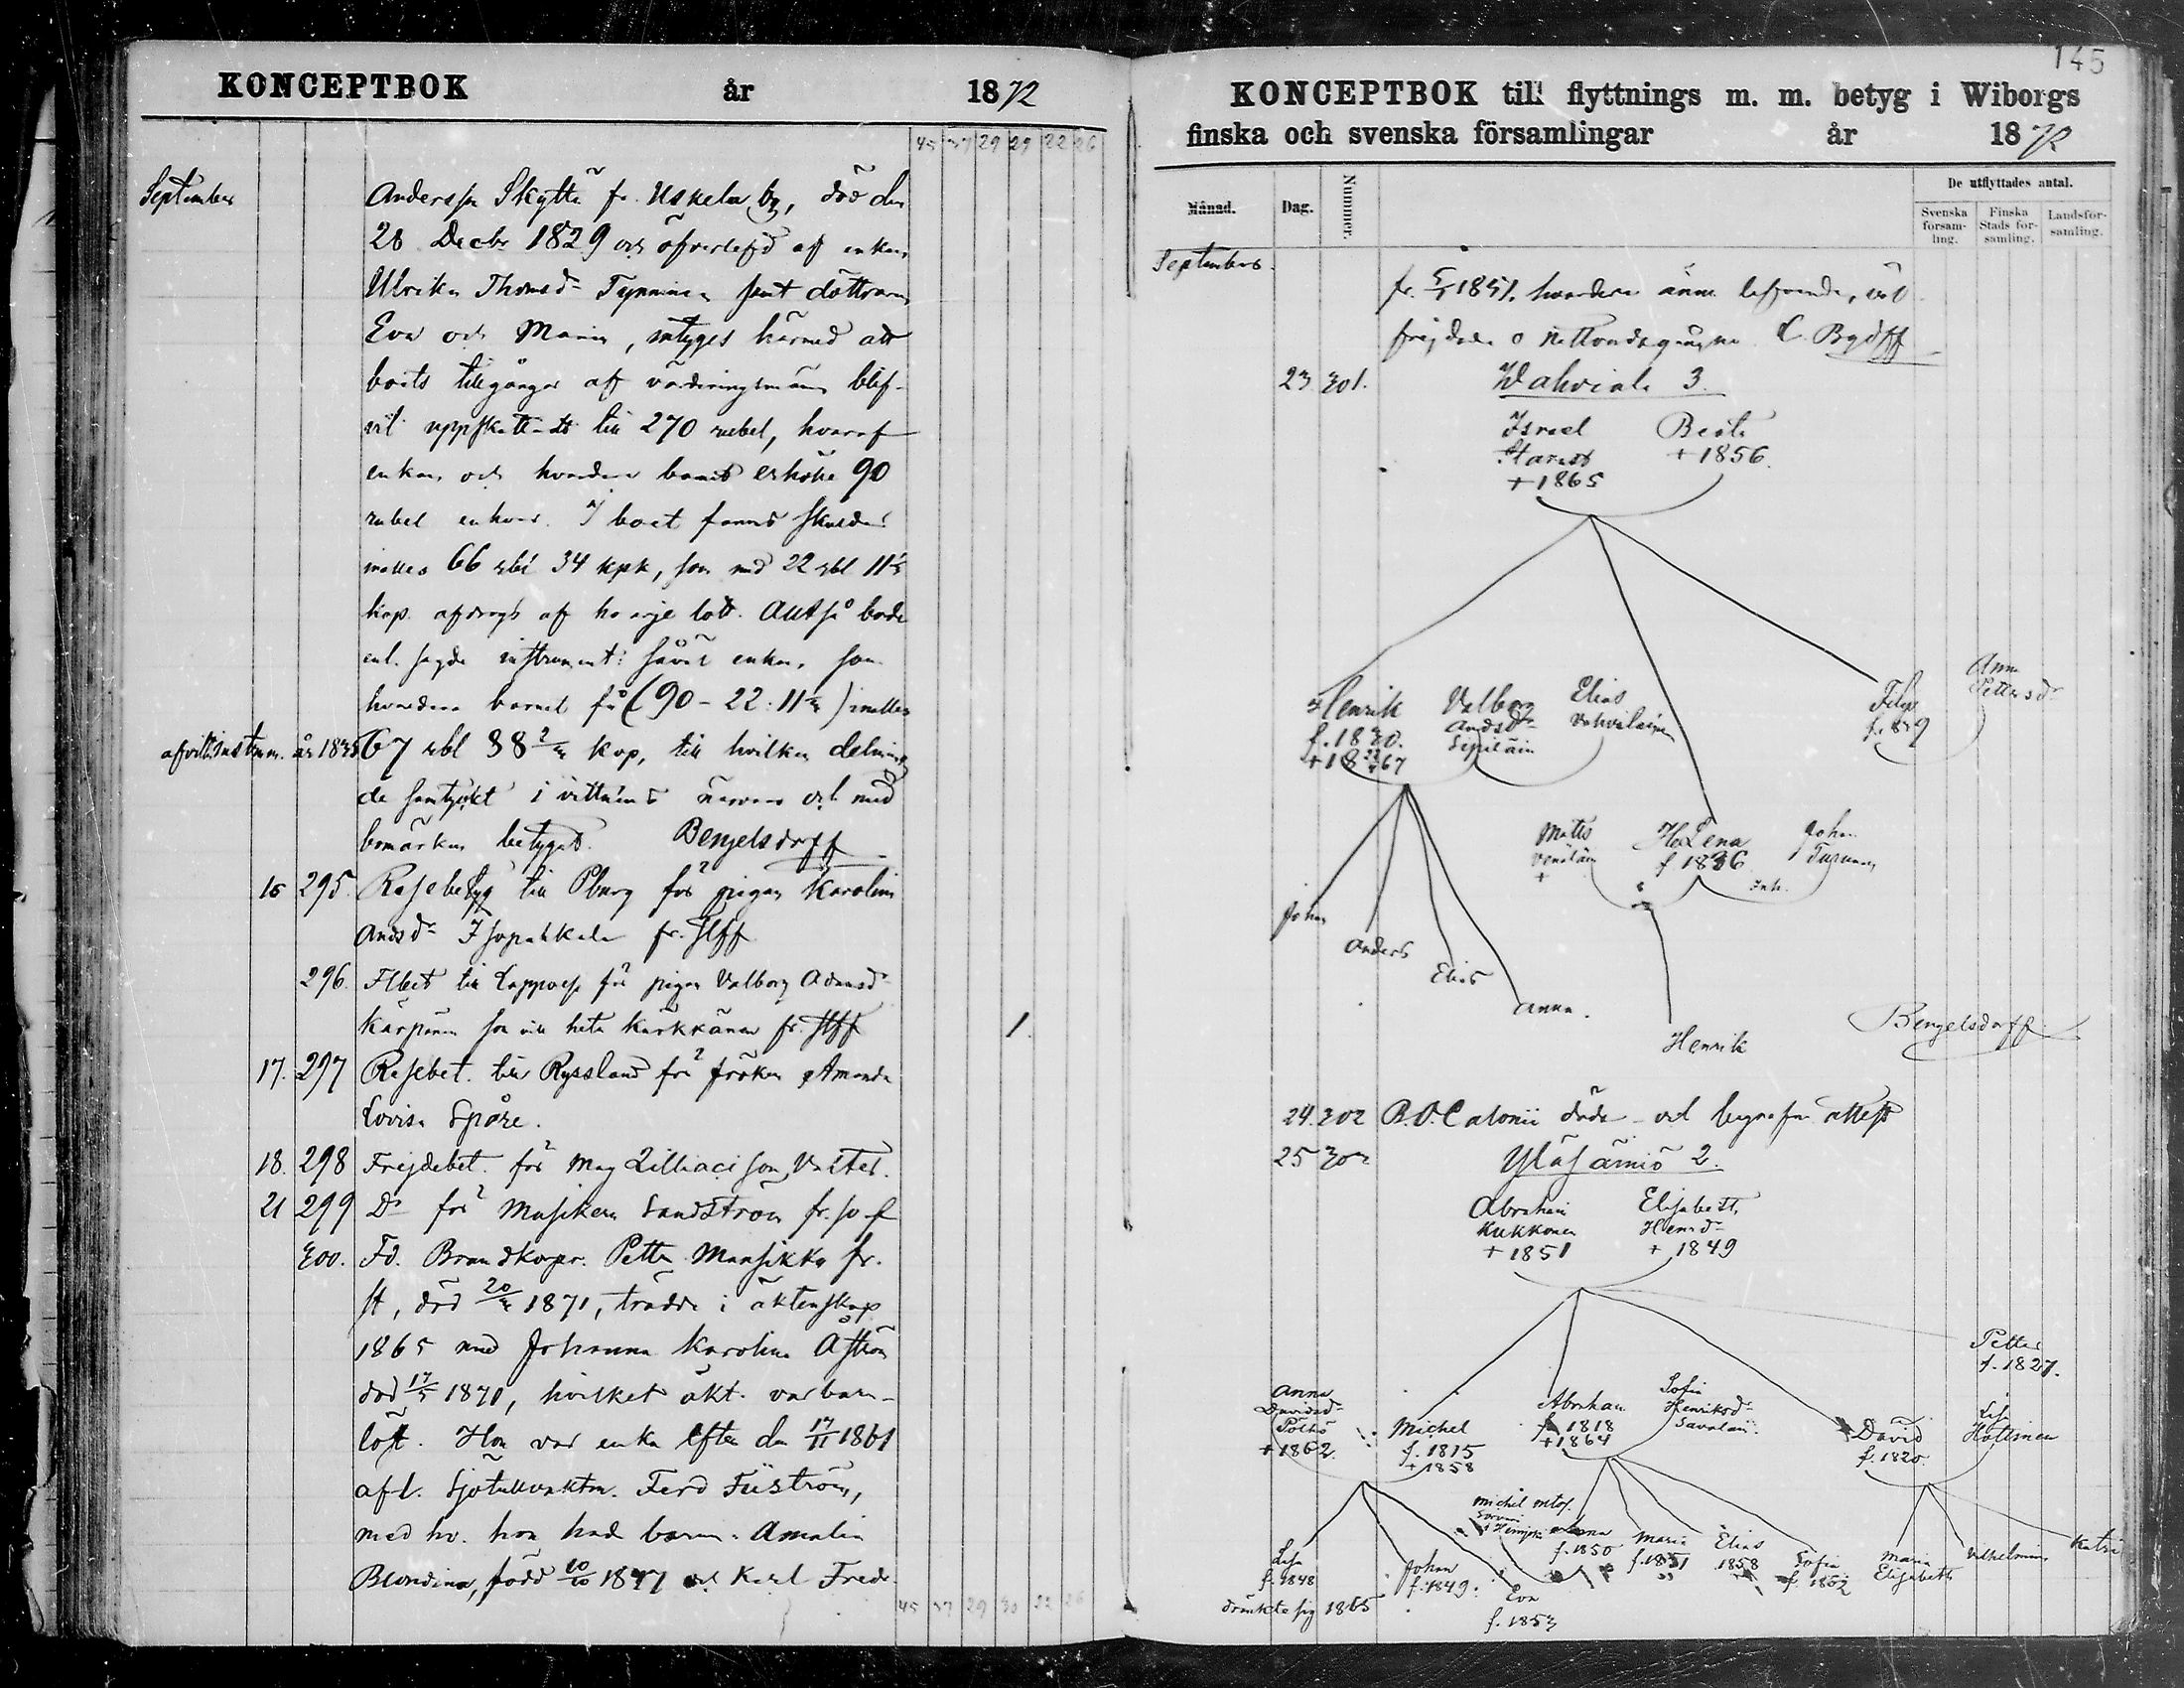 KONCEPTBOK år 1872
45 37 29 29 22 26
September
Anderss: Skyttä fr. Uskela by, död den
28 Decbr 1829 och öfverlefd af enkan
Ulrika Thomasd: Tynninen samt döttrarna
Eva och Maria, intygas härmed att
boets tillgångar af värderingsmännen blif-
vit uppskattade till 270 rubel, hvaraf
enkan och hvardera barnet erhölle 90
rubel enhvar. I boet fanns skulder
66 rbl 34 kpk, som med 22 rbl 11
kop. afdrogs af hvarje lott. Altså borde
enl. sagde instrument: såväl enkan som
hvardera barnet få (90 - 22:11)
af instrum. år 1835 67 rbl 88 kop, till hvilken delning
de samtyckt i vittnens närvaro och med
bomärken betygat. Bengelsdorff
16 295. Resebetyg till Pburg för pigan Karolina
Andsdr
296. Flbet till för pigan Valborg Adamsd:
Kärpänen som vill heta Kärkkänen fr. 1.
17. 297 Resebet. till Ryssland för fröken Amanda
Lovisa Spåre.
18. 298 Frejdebet. för Mag Lilliaci son
21 299 Do för Musikern Sandström
300. Fd. Brandkorpr. Petter Mansikka fr.
st, död 1871, trädde i äktenskap
1865 med Johanna Karolina Åström
död 17/5 1870, hvilket äkt. var barn-
löst. Hon var enka efter den 17/11 1861
afl. Sjötullvaktm. Ferd
med hv. hon had barn: Amalia
Blondina, född 1847 och Karl Fredr.
45 37 29 30 22 26
145
KONCEPTBOK till flyttnings m. m. betyg i Wiborgs
finska och svenska församlingar år 1872
Månad. Dag. Nummer. De utflyttades antal.
Svenska församling. Finska Stads församling. Landsförsamling.
September.
1851, hvardera ännu lefvande, väl
frejdade o nattvardsgångna C. Bgdff
23 301. Wahviala 3.
Israel Beata
+1856.
+1865
Henrik Valborg Elias Filip Anna
f. 1830. Andsdr Vahvilainen f. 1839 Pettersdr
+18 67 Sipiläin
Matts H. Lena Johan
f 1836
+
Johan
Anders
Elias
Anna.
Henrik Bengelsdorff
24. 302 B.O. Calonii döds- och begrafn attest
25 302 Yläsämiö 2.
Abraham Elisabeth
Kukkonen Henrdr
+1851 +1849
Petter
f. 1827.
Anna Davidsdr +1862
Michel f. 1815 +1858
Abraham f. 1818 +1864
Sofia Henriksdr Savolain.
David f. 1820.
Lisa
Lisa f. 1848
dränkte sig 1865
Johan f. 1849.
Eva f. 1853
Anna f. 1850
Maria f. 1851
Elias 1858
Sofia f. 1862
Maria Elisabeth
Vilhelmina
Katri